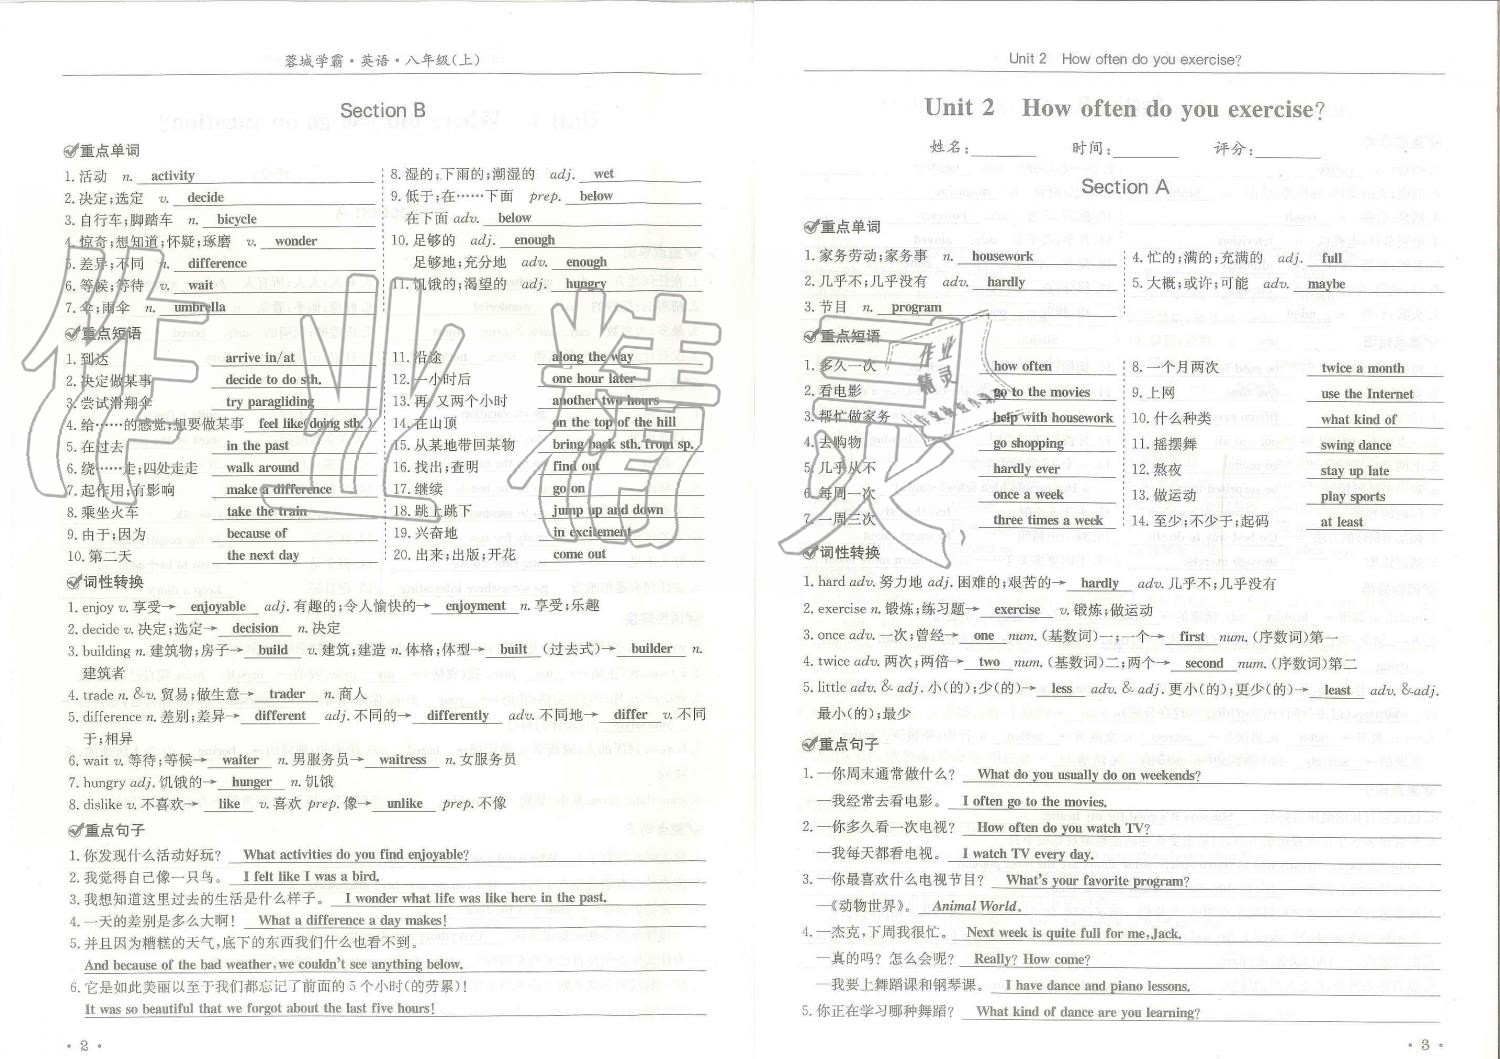 蓉城学霸·英语·八年级(上)
Section B
重点单词
1. 活动 n. activity
2. 决定;选定 v. decide
3. 自行车;脚踏车 n. bicycle
4. 惊奇;想知道;怀疑;琢磨 v. wonder
5. 差异;不同 n. difference
6. 等候;等待 v. wait
7. 伞;雨伞 n. umbrella
8. 湿的;下雨的;潮湿的 adj. wet
9. 低于;在……下面 prep. below
在下面 adv. below
10. 足够的 adj. enough
足够地;充分地 adv. enough
11. 饥饿的;渴望的 adj. hungry
重点短语
1. 到达 arrive in/at
2. 决定做某事 decide to do sth.
3. 尝试滑翔伞 try paragliding
4. 给……的感觉;想要做某事 feel like(doing sth.)
5. 在过去 in the past
6. 绕……走;四处走走 walk around
7. 起作用;有影响 make a difference
8. 乘坐火车 take the train
9. 由于;因为 because of
10. 第二天 the next day
11. 沿途 along the way
12. 一小时后 one hour later
13. 再/又两个小时 another two hours
14. 在山顶 on the top of the hill
15. 从某地带回某物 bring back sth. from sp.
16. 找出;查明 find out
17. 继续 go on
18. 跳上跳下 jump up and down
19. 兴奋地 in excitement
20. 出来;出版;开花 come out
词性转换
1. enjoy v. 享受→ enjoyable adj. 有趣的;令人愉快的→ enjoyment n. 享受;乐趣
2. decide v. 决定;选定→ decision n. 决定
3. building n. 建筑物;房子→ build v. 建筑;建造 n. 体格;体型→ built (过去式)→ builder n.
建筑者
4. trade n. &v. 贸易;做生意→ trader n. 商人
5. difference n. 差别;差异→ different adj. 不同的→ differently adv. 不同地→ differ v. 不同
于;相异
6. wait v. 等待;等候→ waiter n. 男服务员→ waitress n. 女服务员
7. hungry adj. 饥饿的→ hunger n. 饥饿
8. dislike v. 不喜欢→ like v. 喜欢 prep. 像→ unlike prep. 不像
重点句子
1. 你发现什么活动好玩? What activities do you find enjoyable?
2. 我觉得自己像一只鸟。 I felt like I was a bird.
3. 我想知道这里过去的生活是什么样子。 I wonder what life was like here in the past.
4. 一天的差别是多么大啊! What a difference a day makes!
5. 并且因为糟糕的天气,底下的东西我们什么也看不到。
And because of the bad weather, we couldn't see anything below.
6. 它是如此美丽以至于我们都忘记了前面的5个小时(的劳累)!
It was so beautiful that we forgot about the last five hours!
· 2 ·
Unit 2 How often do you exercise?
Unit 2 How often do you exercise?
姓名: 时间: 评分:
Section A
重点单词
1. 家务劳动;家务事 n. housework
2. 几乎不;几乎没有 adv. hardly
3. 节目 n. program
4. 忙的;满的;充满的 adj. full
5. 大概;或许;可能 adv. maybe
重点短语
1. 多久一次 how often
2. 看电影 go to the movies
3. 帮忙做家务 help with housework
4. 去购物 go shopping
5. 几乎从不 hardly ever
6. 每周一次 once a week
7. 一周三次 three times a week
8. 一个月两次 twice a month
9. 上网 use the Internet
10. 什么种类 what kind of
11. 摇摆舞 swing dance
12. 熬夜 stay up late
13. 做运动 play sports
14. 至少;不少于;起码 at least
词性转换
1. hard adv. 努力地 adj. 困难的;艰苦的→ hardly adv. 几乎不;几乎没有
2. exercise n. 锻炼;练习题→ exercise v. 锻炼;做运动
3. once adv. 一次;曾经→ one num. (基数词)一;一个→ first num. (序数词)第一
4. twice adv. 两次;两倍→ two num. (基数词)二;两个→ second num. (序数词)第二
5. little adv. & adj. 小(的);少(的)→ less adv. & adj. 更小(的);更少(的)→ least adv. &adj.
最小(的);最少
重点句子
1. —你周末通常做什么? What do you usually do on weekends?
—我经常去看电影。 I often go to the movies.
2. —你多久看一次电视? How often do you watch TV?
—我每天都看电视。 I watch TV every day.
3. —你最喜欢什么电视节目? What's your favorite program?
—《动物世界》。 Animal World.
4. —杰克,下周我很忙。 Next week is quite full for me, Jack.
—真的吗?怎么会呢? Really? How come?
—我要上舞蹈课和钢琴课。 I have dance and piano lessons.
5. 你正在学习哪种舞蹈? What kind of dance are you learning?
· 3 ·
作业精灵
作业
精灵